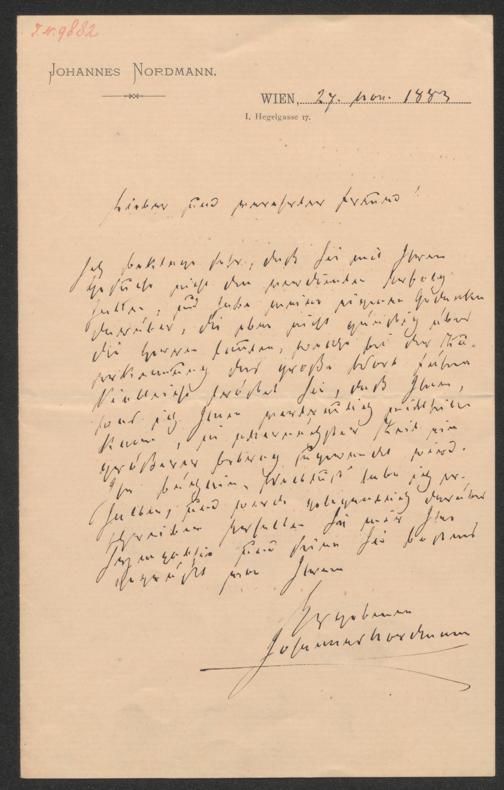 J.N. 9882
JOHANNES NORDMANN.
WIEN, 27. Nov. 1883
I, Hegelgasse 17.
Lieber und verehrter Freund!
Ich beklage sehr, daß Sie mit Ihrem
Gesuche nicht den verdienten Erfolg
hatten, und habe meine eigenen Gedanken
darüber, die eben nicht günstig über
die Herren lauten, welche bei der Zu-
erkennung das große Wort führen
Vielleicht tröstet Sie, daß Ihnen,
was ich Ihnen vertraulich mittheilen
kann, in allernächster Zeit ein
größerer Betrag zugewendet wird.
Ihr Büchlein habe ich er-
halten, und werde gelegentlich darüber
schreiben. Erhalten Sie mir Ihre
Sympathie und seien Sie bestens
gegrüßt von Ihrem
Ergebenen
Johannes Nordmann